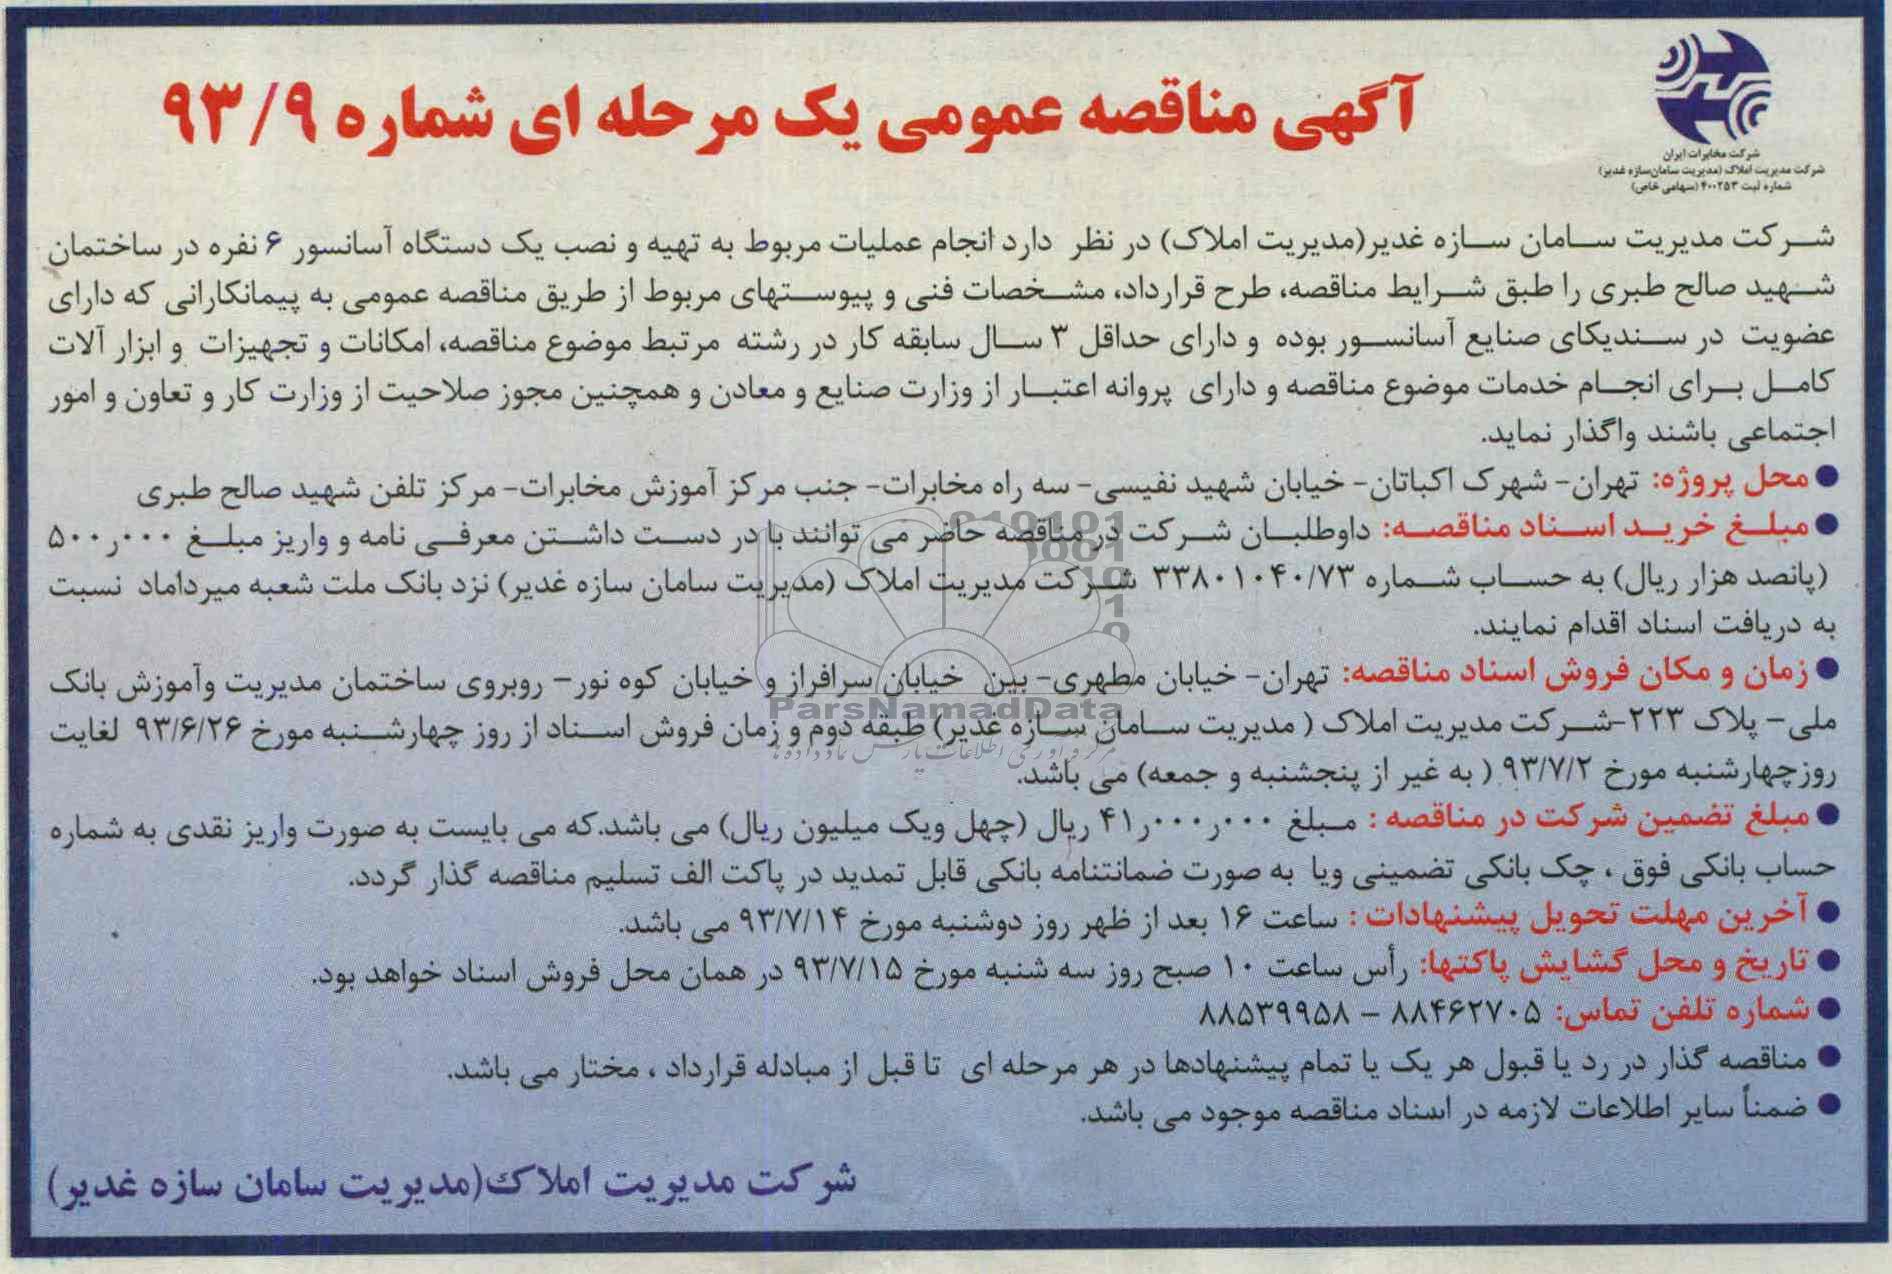 شرکت مخابرات ایران
شرکت مدیریت املاک (مدیریت سامان‌سازه غدیر)
شماره ثبت ۴۰۰۲۵۳ (سهامی خاص)
آگهی مناقصه عمومی یک مرحله ای شماره ۹۳/۹
شرکت مدیریت سامان سازه غدیر(مدیریت املاک) در نظر دارد انجام عملیات مربوط به تهیه و نصب یک دستگاه آسانسور ۶ نفره در ساختمان
شهید صالح طبری را طبق شرایط مناقصه، طرح قرارداد، مشخصات فنی و پیوستهای مربوط از طریق مناقصه عمومی به پیمانکارانی که دارای
عضویت در سندیکای صنایع آسانسور بوده و دارای حداقل ۳ سال سابقه کار در رشته مرتبط موضوع مناقصه، امکانات و تجهیزات و ابزار آلات
کامل برای انجام خدمات موضوع مناقصه و دارای پروانه اعتبار از وزارت صنایع و معادن و همچنین مجوز صلاحیت از وزارت کار و تعاون و امور
اجتماعی باشند واگذار نماید.
● محل پروژه: تهران- شهرک اکباتان- خیابان شهید نفیسی- سه راه مخابرات- جنب مرکز آموزش مخابرات- مرکز تلفن شهید صالح طبری
● مبلغ خرید اسناد مناقصه: داوطلبان شرکت در مناقصه حاضر می توانند با در دست داشتن معرفی نامه و واریز مبلغ ۵۰۰ر۰۰۰
(پانصد هزار ریال) به حساب شماره ۳۳۸۰۱۰۴۰/۷۳ شرکت مدیریت املاک (مدیریت سامان سازه غدیر) نزد بانک ملت شعبه میرداماد نسبت
به دریافت اسناد اقدام نمایند.
● زمان و مکان فروش اسناد مناقصه: تهران- خیابان مطهری- بین خیابان سرافراز و خیابان کوه نور- روبروی ساختمان مدیریت وآموزش بانک
ملی- پلاک ۲۲۳-شرکت مدیریت املاک ( مدیریت سامان سازه غدیر) طبقه دوم و زمان فروش اسناد از روز چهارشنبه مورخ ۹۳/۶/۲۶ لغایت
روزچهارشنبه مورخ ۹۳/۷/۲ ( به غیر از پنجشنبه و جمعه) می باشد.
● مبلغ تضمین شرکت در مناقصه : مبلغ ۴۱ر۰۰۰ر۰۰۰ ریال (چهل ویک میلیون ریال) می باشد.که می بایست به صورت واریز نقدی به شماره
حساب بانکی فوق ، چک بانکی تضمینی ویا به صورت ضمانتنامه بانکی قابل تمدید در پاکت الف تسلیم مناقصه گذار گردد.
● آخرین مهلت تحویل پیشنهادات : ساعت ۱۶ بعد از ظهر روز دوشنبه مورخ ۹۳/۷/۱۴ می باشد.
● تاریخ و محل گشایش پاکتها: رأس ساعت ۱۰ صبح روز سه شنبه مورخ ۹۳/۷/۱۵ در همان محل فروش اسناد خواهد بود.
● شماره تلفن تماس: ۸۸۴۶۲۷۰۵ - ۸۸۵۳۹۹۵۸
● مناقصه گذار در رد یا قبول هر یک یا تمام پیشنهادها در هر مرحله ای تا قبل از مبادله قرارداد ، مختار می باشد.
● ضمناً سایر اطلاعات لازمه در اسناد مناقصه موجود می باشد.
شرکت مدیریت املاک(مدیریت سامان سازه غدیر)
ParsNamadData